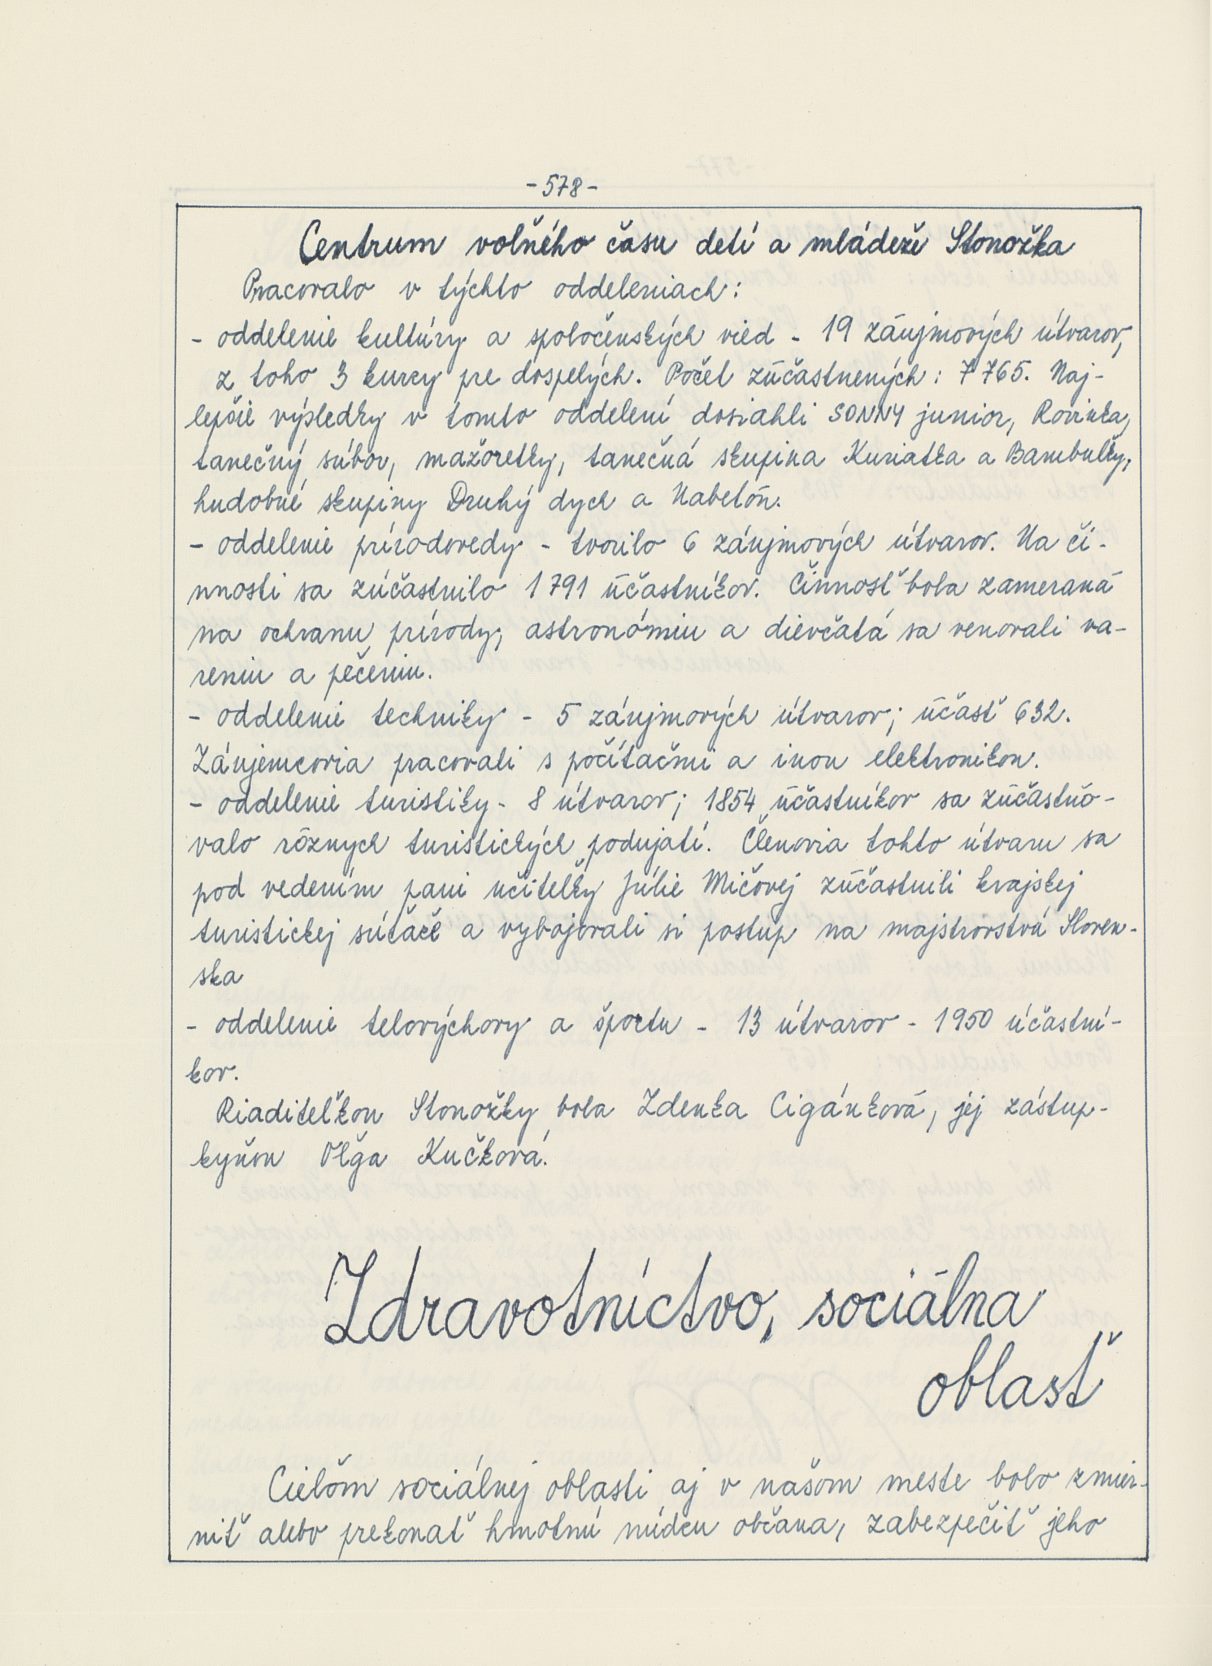 -578-
Centrum voľného času detí a mládeže Stonožka
Pracovalo v týchto oddeleniach:
- oddelenie kultúry a spoločenských vied - 19 záujmových útvarov,
z toho 3 kurzy pre dospelých. Počet zúčastnených: 7 765. Naj-
lepšie výsledky v tomto oddelení dosiahli SONNY junior, Rovinka,
tanečný súbor, mažoretky, tanečná skupina Kuriatka a Bambuľky,
hudobné skupiny Druhý dych a Nabetón.
- oddelenie prírodovedy - tvorilo 6 záujmových útvarov. Na či-
nnosti sa zúčastnilo 1 791 účastníkov. Činnosť bola zameraná
na ochranu prírody, astronómiu a dievčatá sa venovali va-
reniu a pečeniu.
- oddelenie techniky - 5 záujmových útvarov; účasť 632.
Záujemcovia pracovali s počítačmi a inou elektronikou.
- oddelenie turistiky - 8 útvarov; 1854 účastníkov sa zúčastňo-
valo rôznych turistických podujatí. Členovia tohto útvaru sa
pod vedením pani učiteľky Júlie Mičovej zúčastnili krajskej
turistickej súťaže a vybojovali si postup na majstrovstvá Sloven-
ska
- oddelenie telovýchovy a športu - 13 útvarov - 1950 účastní-
kov.
Riaditeľkou Stonožky bola Zdenka Cigánková, jej zástup-
kyňou Oľga Kučková.
Zdravotníctvo, sociálna
oblasť
Cieľom sociálnej oblasti aj v našom meste bolo zmier-
niť alebo prekonať hmotnú núdzu občana, zabezpečiť jeho